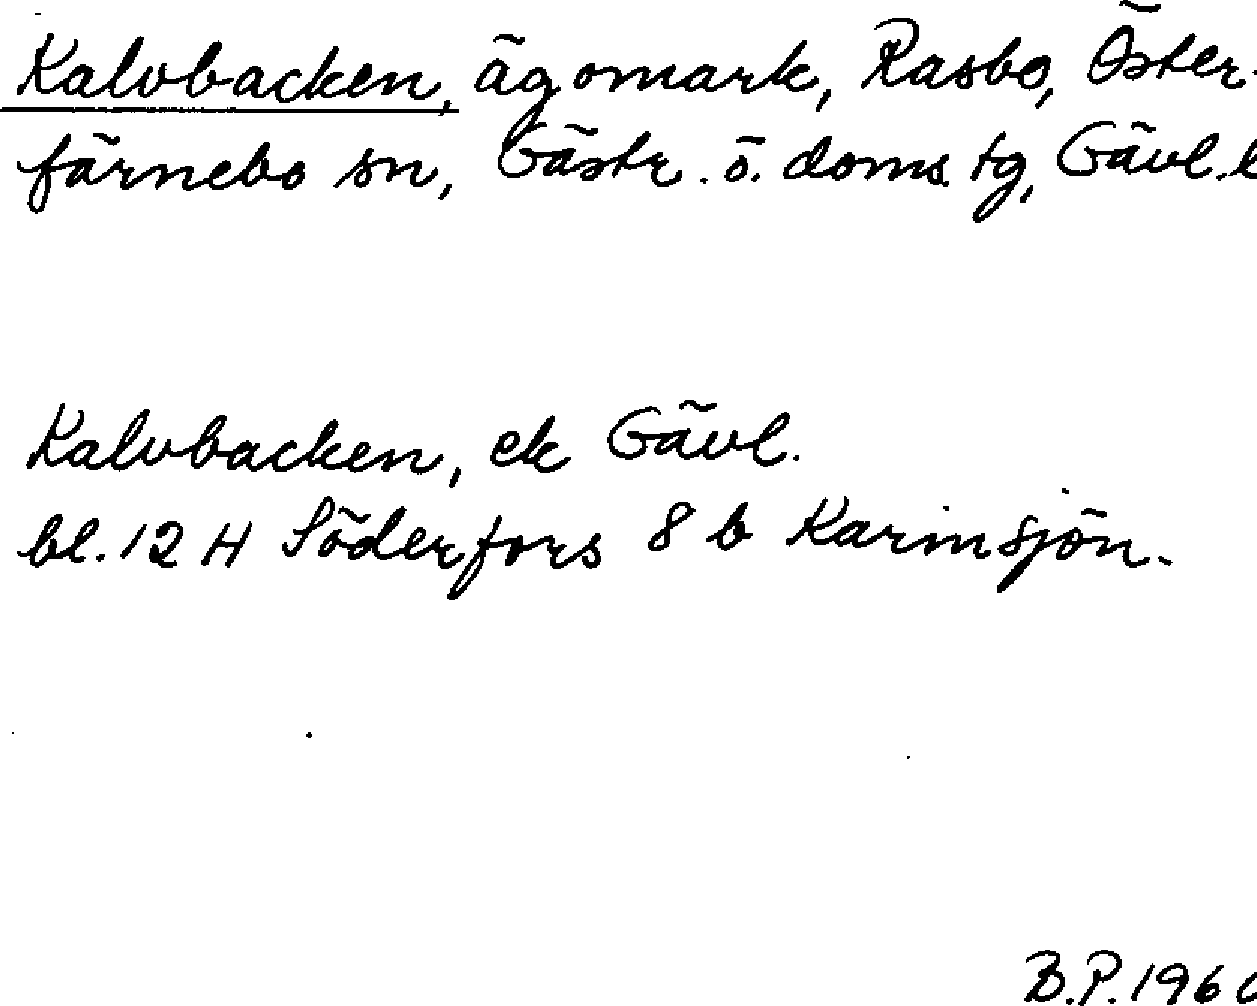 Kalvbacken, ägomark, Rasbo, Öster-
färnebo sn, Gästr. ö. doms. tg, Gävl. l
Kalvbacken, ek Gävl.
bl. 12 H Söderfors 8 b Karinsjön.
B.P. 196